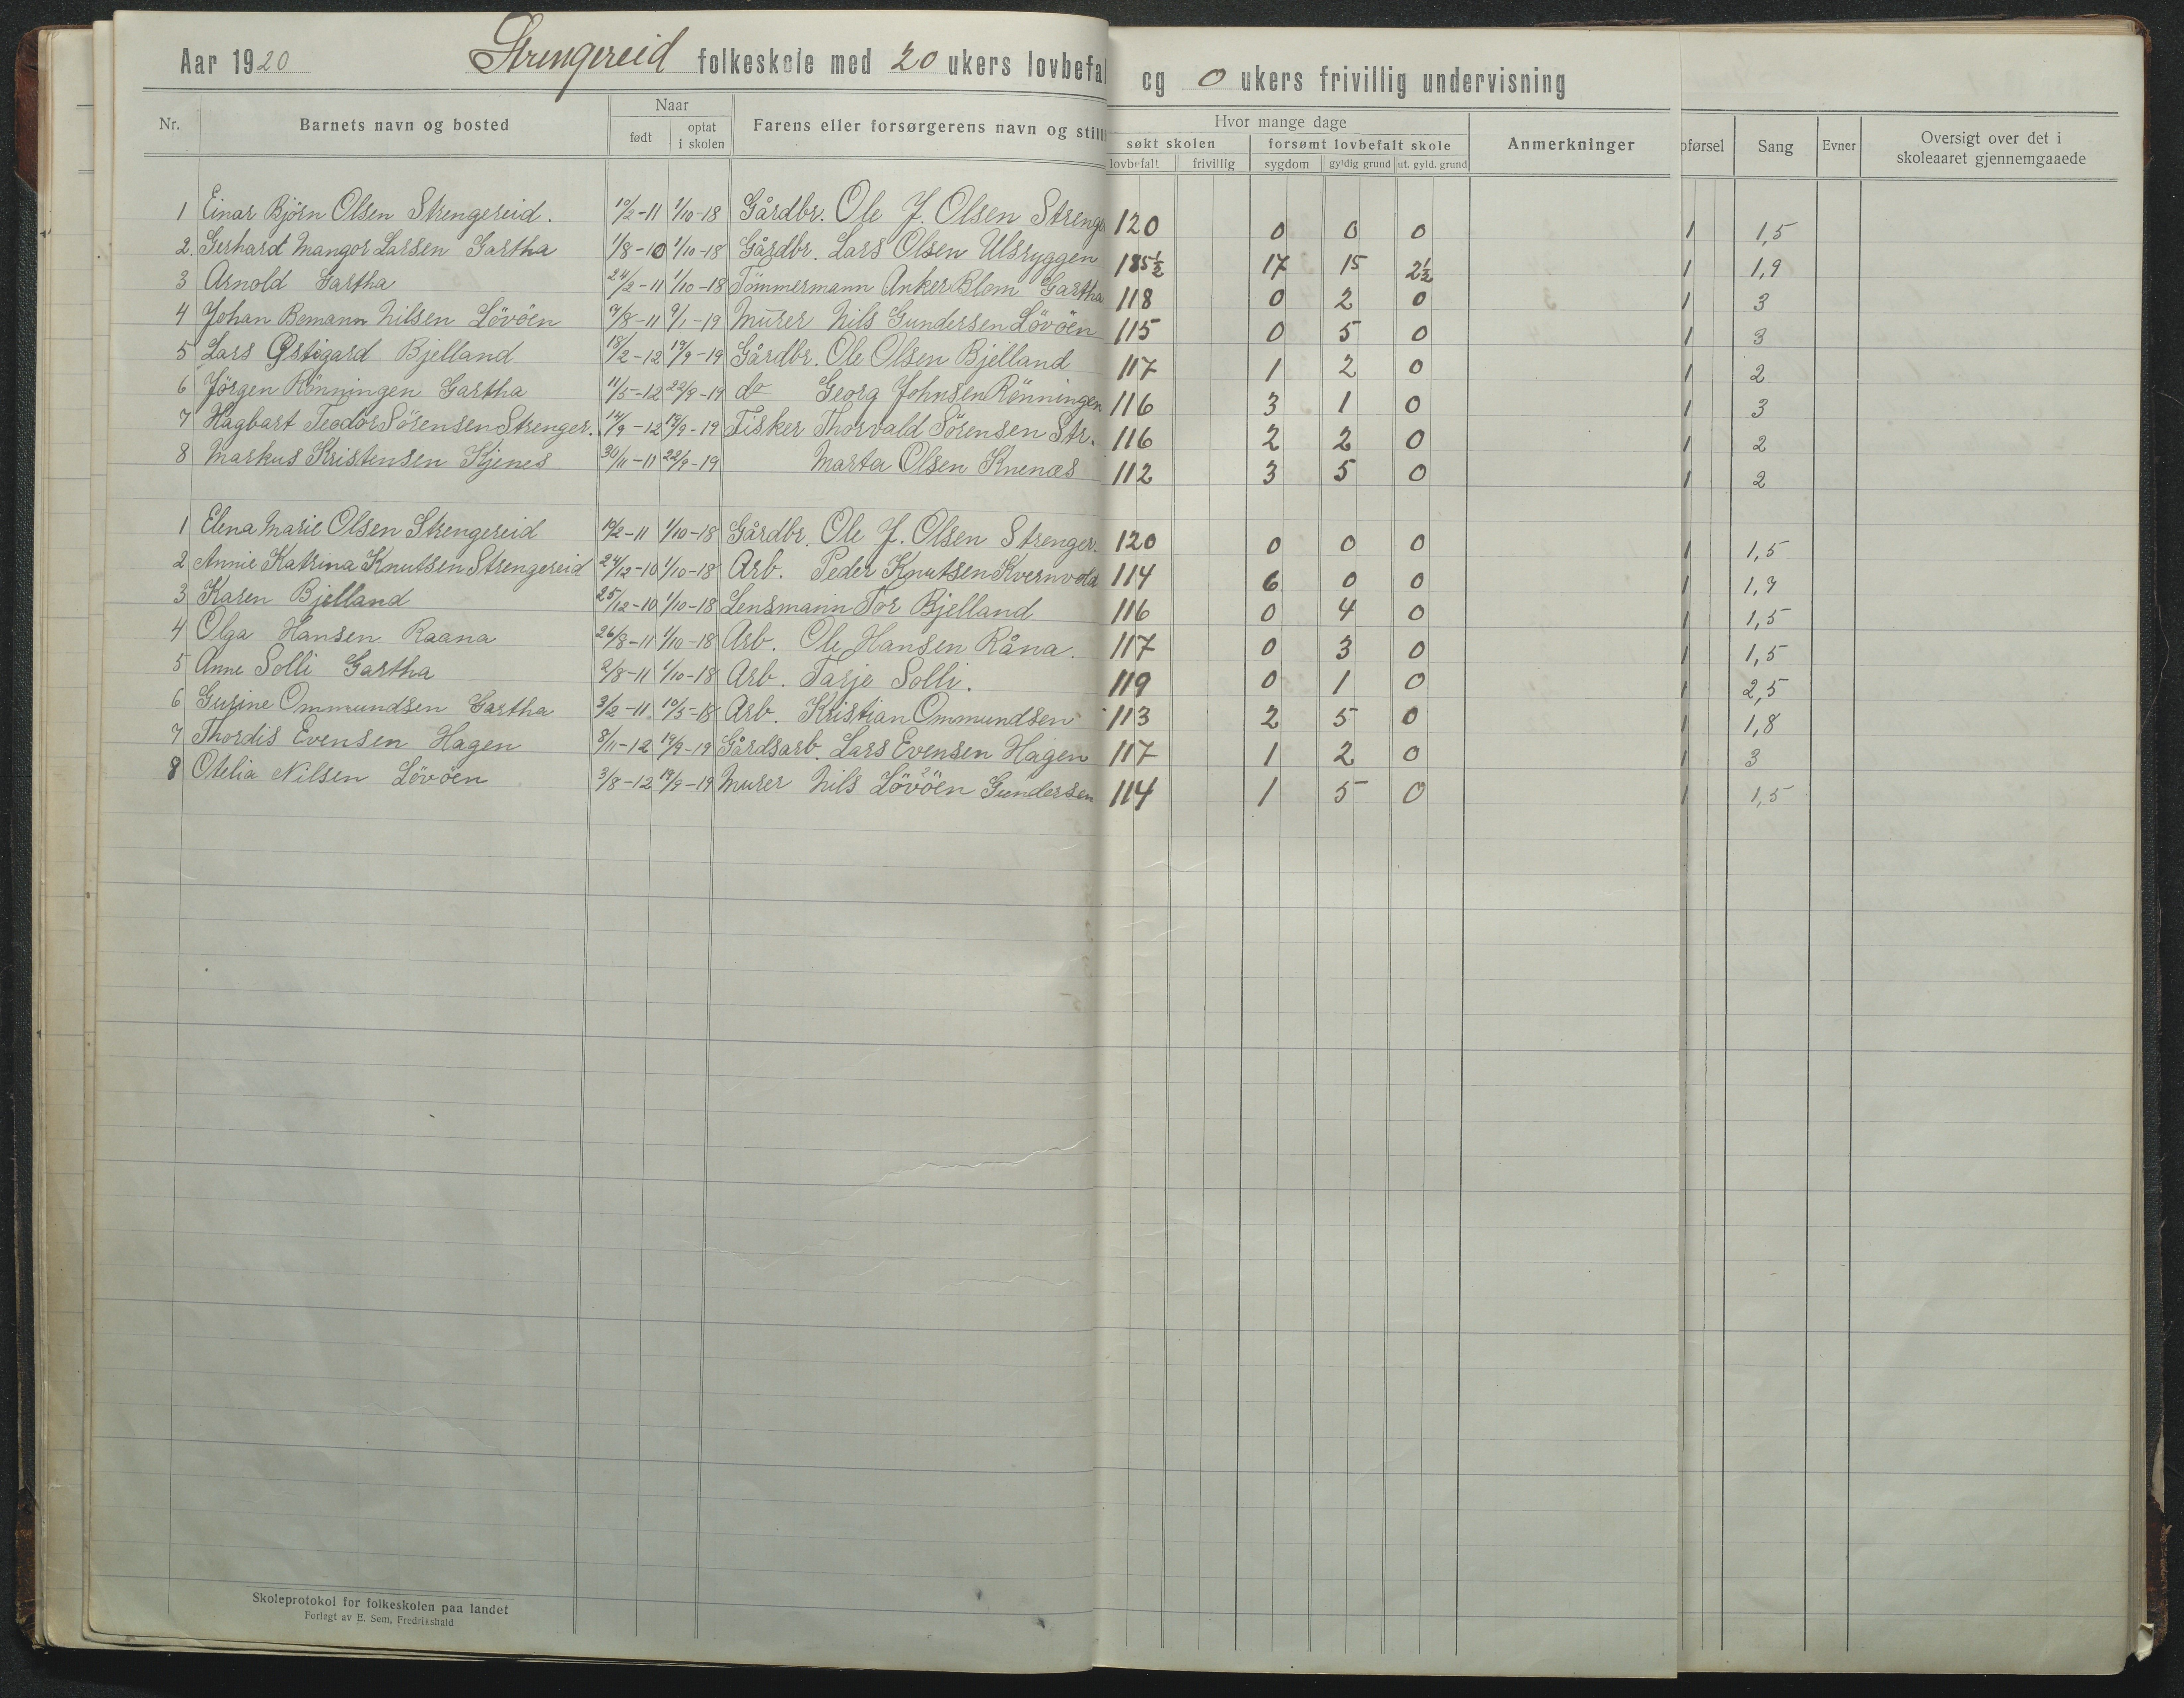 Aar 1920 Strengereid folkeskole med 20 ukers lovbefal og 0 ukers frivillig undervisning
Nr. Barnets navn og bosted Naar født optat i skolen Farens eller forsørgerens navn og still Hvor mange dage søkt skolen lovbefalt frivillig forsømt lovbefalt skole sygdom gyldig grund ut. gyld. grund Anmerkninger pførsel Sang Evner Oversigt over det i skoleaaret gjennemgaaede
1 Einar Bjørn Olsen Strengereid. 10/2-11 1/10-18 Gårdbr. Ole J. Olsen Strenge 120 0 0 0 1 1,5
2. Gerhard Mangor Larsen Gartha 1/8-10 1/10-18 Gårdbr. Lars Olsen Ulsryggen 17 15 2½ 1 1,9
3 Arnold Gartha 24/2-11 1/10-18 Tömmermann Anker Blom Gartha 118 0 2 0 1 3
4 Johan Bemann Nilsen Lövöen 9/1-19 Murer Nils Gundersen Lövöen 115 0 5 0 1 3
5 Lars Østigard Bjelland 18/2-12 19/9-19 Gårdbr. Ole Olsen Bjelland 117 1 2 0 1 2
6 Jörgen Rönningen Gartha 11/5-12 22/9-19 do Georg Johnsen Rönningen 116 3 1 0 1 3
7 Hagbart Teodor Sörensen Strenger. 14/9-12 19/9-19 Fisker Thorvald Sörensen Str. 116 2 2 0 1 2
8 Markus Kristensen Kjenes 30/11-11 22/9-19 Marta Olsen Knenæs 112 3 5 0 1 2
1 Elena Marie Olsen Strengereid 10/2-11 1/10-18 Gårdbr. Ole J. Olsen Strenger. 120 0 0 0 1 1,5
2 Annie Katrina Knutsen Strengereid 24/12-10 1/10-18 Arb. Peder Knutsen Kvernvold 114 6 0 0 1 1,9
3 Karen Bjelland 25/12-10 1/10-18 Lensmann Tor Bjelland 116 0 4 0 1 1,5
4 Olga Hansen Raana 26/8-11 1/10-18 Arb. Ole Hansen Råna. 117 0 3 0 1 1,5
5 Anne Solli Gartha 2/8-11 1/10-18 Arb. Tarje Solli. 119 0 1 0 1 2,5
6 Gurine Ommundsen Gartha 3/2-11 10/5-18 Arb. Kristian Ommundsen 113 2 5 0 1 1,8
7 Thordis Evensen Hagen 8/11-12 19/9-19 Gårdsarb. Lars Evensen Hagen 117 1 2 0 1 3
8 Otelia Nilsen Lövöen 3/8-12 19/9-19 Murer Nils Lövöen Gundersen 114 1 5 0 1 1,5
Skoleprotokol for folkeskolen paa landet
Forlagt av E. Sem, Fredrikshald